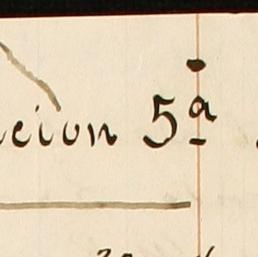 cion 5ª